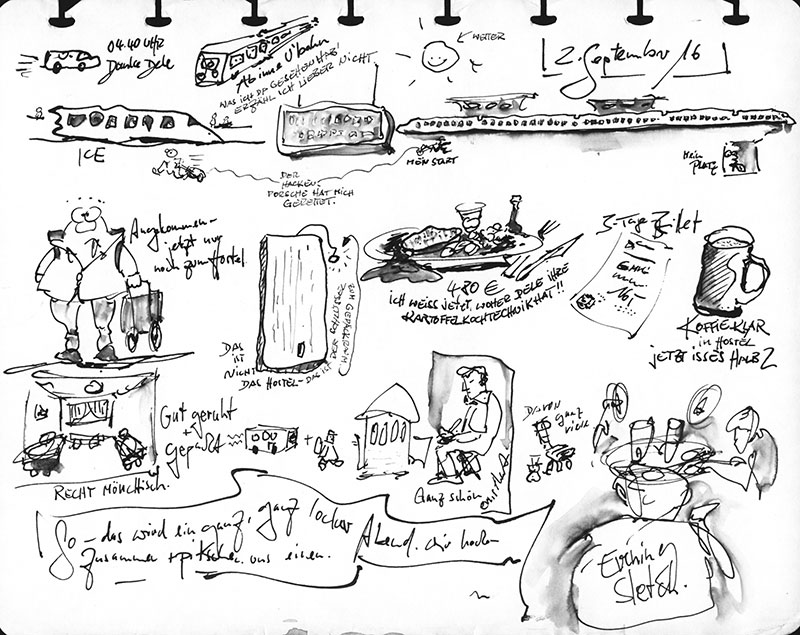 04.40 UHR
Danke Dele
Ab ins U'bahn
WAS ICH DA GESEHEN HAB'
ERZÄHL ICH LIEBER NICHT
WETTER
2. September 16
ICE
DER
HACKEN-
PORSCHE HAT MICH
GERETTET.
MEIN START
Mein
PLATZ
Angekommen-
jetzt nur
noch zum Hostel
DAS
IST
NICHT
DAS HOSTEL - DAS IST DER SCHLÜSSEL
ZUM GEPÄCKRAUM
4.80 €
ICH WEISS JETZT, WOHER DELE IHRE
KARTOFFELKOCHTECHNIK HAT!!
3-Tage Ticket
16,-
KOFFIE KLAR
in HOSTEL
JETZT ISSES HALB 2
RECHT MÖNCHISCH.
Gut geruht
+
+
Ganz schön
DAVON
ganz
viele
! So - das wird ein ganz, ganz lockerer Abend. Wir hocken
zusammen + pitschen uns einen.
Evening
Sketch.